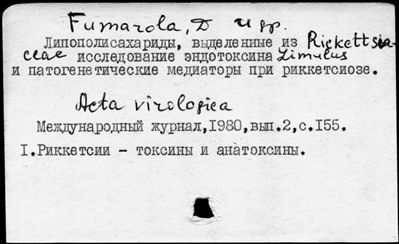 Fumarola, D и др.
Липополисахариды, выделенные из Rickettsia-
ceae исследование эндотоксина Limulus
и патогенетические медиаторы при риккетсиозе.
Acta virologica
Международный журнал,1980,вып.2,с.155.
I.Риккетсии - токсины и анатоксины.